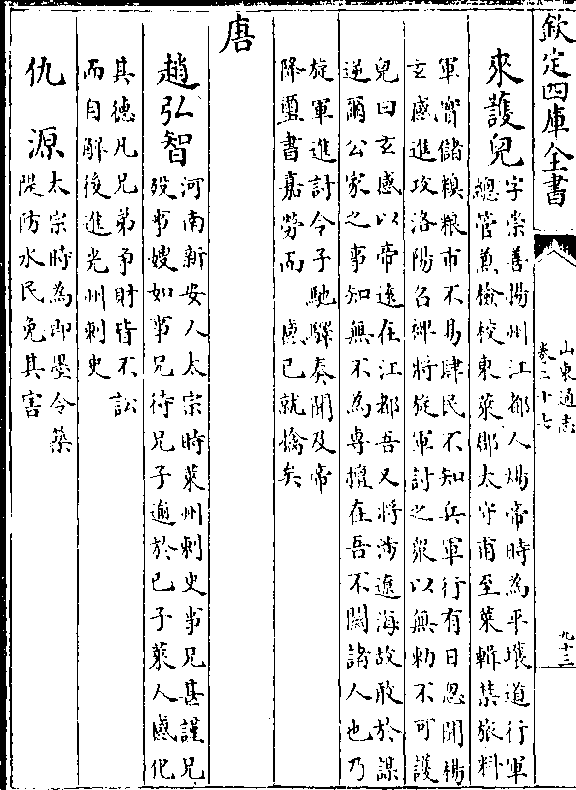 欽定四庫全書
山東通志
卷二十七
九十三
來護兒
字崇善揚州江都人煬帝時為平壤道行軍
總管兼檢校東萊郡太守甫至萊輯禁旅料
軍實儲糗粮市不易肆民不知兵軍行有日忽聞楊
玄感進攻洛陽召裨將旋軍討之衆以無勅不可護
兒曰玄感以帝遠在江都吾又將涉遼海故敢於謀
逆爾公家之事知無不為專擅在吾不關諸人也乃
旋軍進討令子馳驛奏聞及帝
降璽書嘉勞而 感已就擒矣
唐
趙弘智
河南新安人太宗時萊州刺史事兄甚謹兄
殁事嫂如事兄待兄子逾於己子萊人感化
其德凡兄弟爭財皆不訟
而自解後進光州刺史
仇源
太宗時為即墨令築
隄防水民免其害